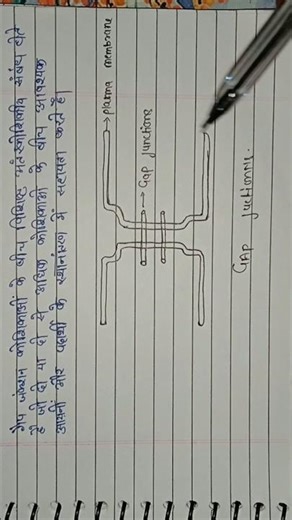 गैप जंक्शन कोशिकाओं के बीच विशिष्ट अंतरकोशिकीय संबंध होते
है जो दो या दो से अधिक कोशिकाओं के बीच आवश्यक
आयनों और पदार्थों के स्थानांतरण में सहायता करते हैं।
→ plasma membrane
→ Gap junctions
GAP